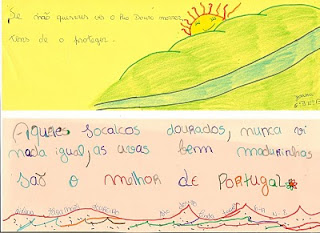 Se não queres ver o Rio Douro morrer
tens de o proteger.
Aqueles socalcos dourados, nunca vi
nada igual, as uvas bem madurinhas
são o melhor de Portugal